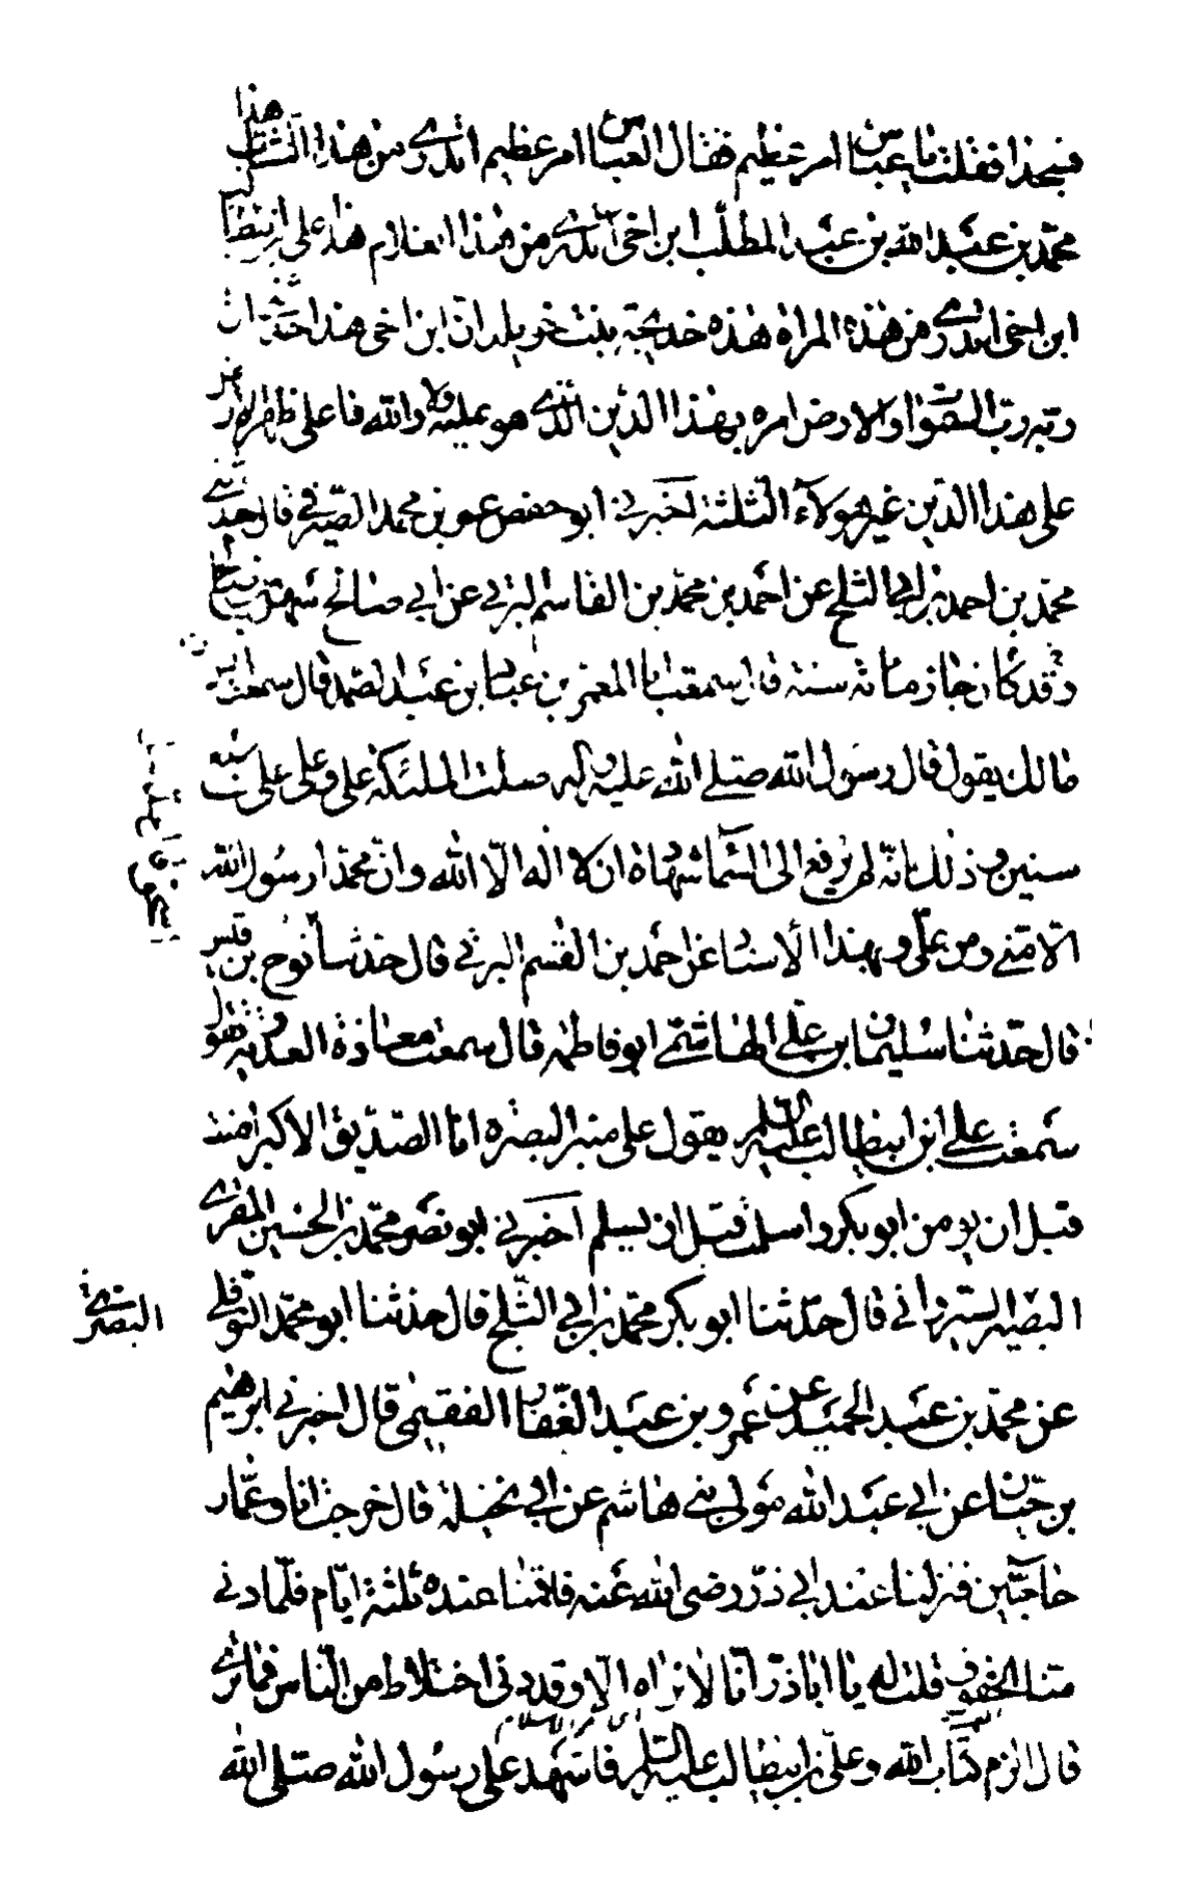 فسجدا فقلت يا عباس امر عظيم فقال العباس امر عظيم اتدري من هذا الشاب هذا
محمد بن عبد الله بن عبد المطلب ابن اخي اتدري من هذا الغلام هذا علي بن ابيطالب
ابن اخي اتدري من هذه المراة هذه خديجة بنت خويلد ان ابن اخي هذا حدثني ان
ربه رب السموات والارض امره بهذا الدين الذي هو عليه ولا والله ما على ظهر الارض
على هذا الدين غير هولآء الثلثة اخبرني ابو حفص عمر بن محمد الصيرفي قال حدثني
محمد بن احمد بن ابي الثلج عن احمد بن محمد بن القاسم البرتي عن ابي صالح سهل بن صالح
وقد كان جاز مائة سنة قال سمعت ابا المعمر بن عباد بن عبد الصمد قال سمعت انس بن
مالك يقول قال رسول الله صلى الله عليه واله صلت الملئكة علي وعلى علي سبع
سنين وذلك انه لم يرفع الى السماء شهادة ان لا اله الا الله وان محمدا رسول الله
الا مني ومن علي وبهذا الاسناد عن احمد بن القسم البرتي قال حدثنا نوح بن قيس
قال حدثنا سليمان بن علي الهاشمي ابو فاطمة قال سمعت معاذة العدوية تقول
سمعت علي ابن ابيطالب عليه السلم يقول على منبر البصرة انا الصديق الاكبر امنت
قبل ان يومن ابو بكر واسلمت قبل ان يسلم اخبرني ابو نصر محمد بن الحسين المقري
البصير السيرواني قال حدثنا ابو بكر محمد بن ابي الثلج قال حدثنا ابو محمد النوفلي
البصري
عن محمد بن عبد الحميد عن عمرو بن عبد الغفار الفقيمي قال اخبرني ابرهيم
بن حيان عن ابي عبد الله مولى بني هاشم عن ابي نخيلة قال خرجت انا وعمار
حاجين فنزلنا عند ابي ذر رضي الله عنه فاقمنا عنده ثلثة ايام فلما دنى
منا الخفوف قلت له يا ابا ذر انا لا نراه الا وقد دنى اختلاط من الناس فما ترى
قال الزم كتاب الله وعلي بن ابيطالب عليه السلم فاشهد على رسول الله صلى الله